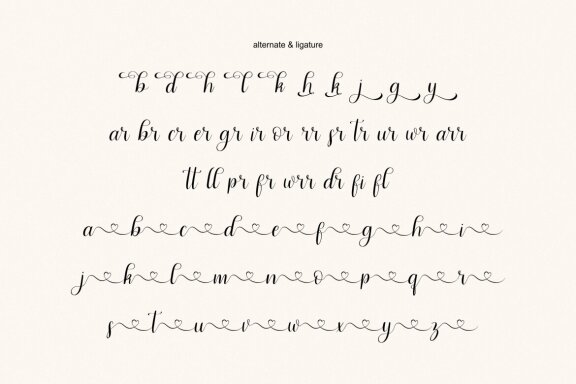 alternate & ligature
b d h l k h k j g y
ar br cr er gr ir or rr sr tr ur wr arr
tt ll pr fr wrr dr fi fl
a b c d e f g h i
j k l m n o p q r
s t u v w x y z